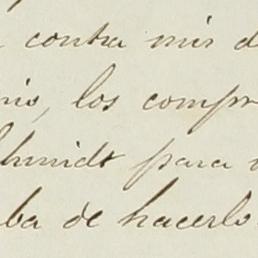 contra mis d
nio, los compr
chmidt para
ba de hacerlo